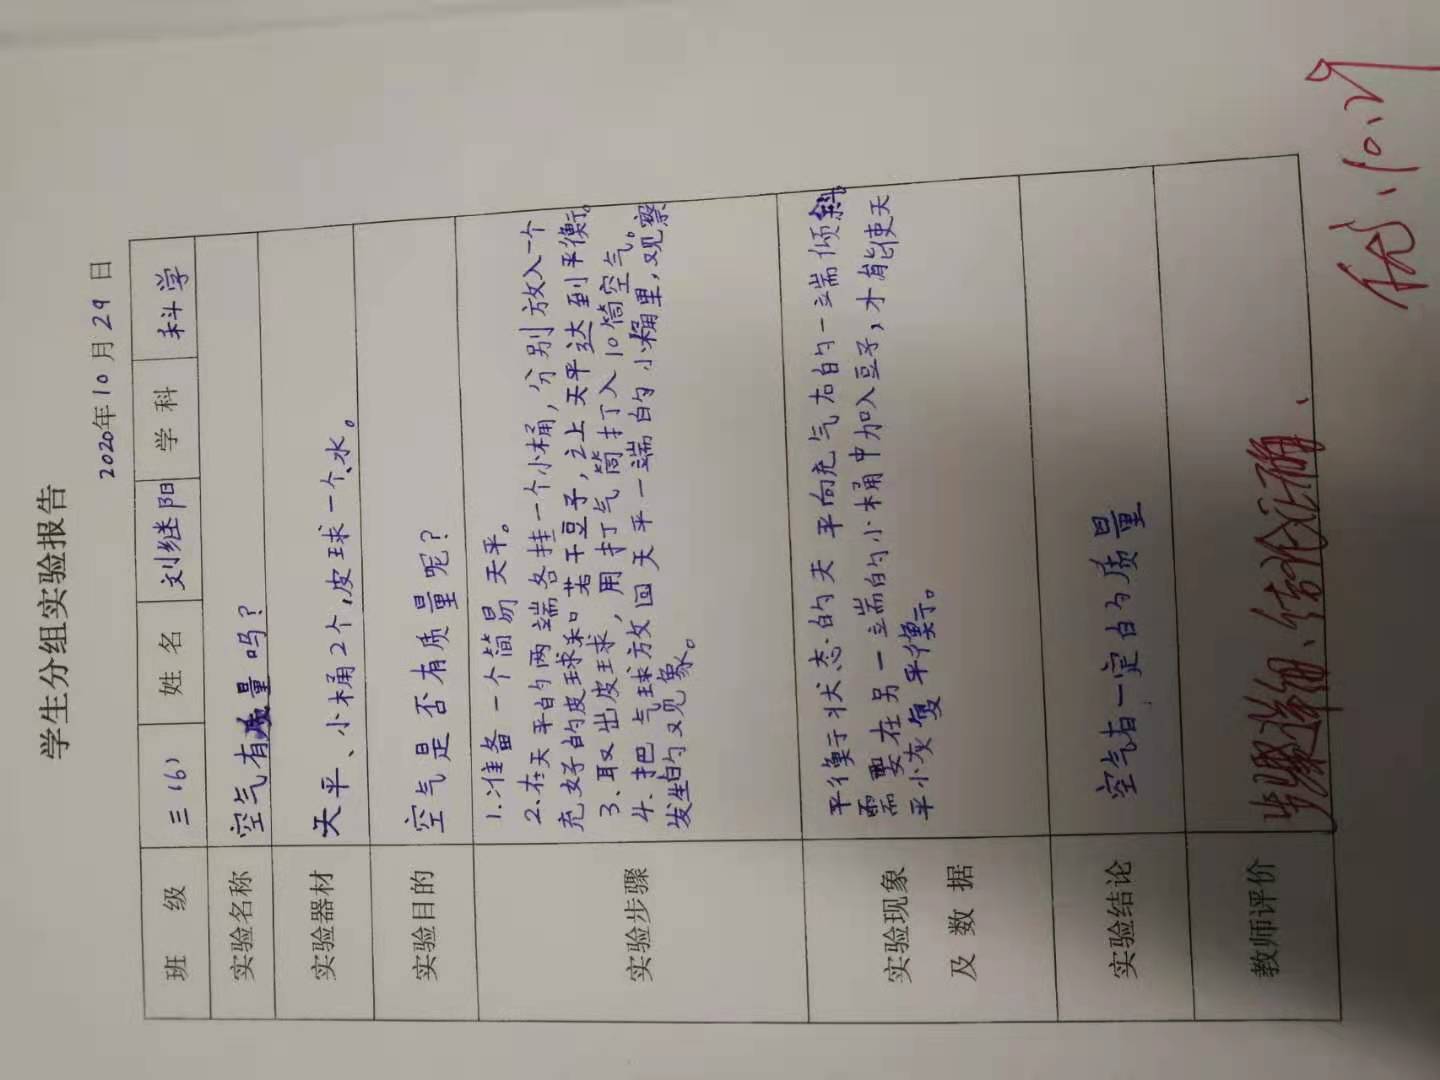 学生分组实验报告
2020年10月29日
班 级 三(6) 姓 名 刘继阳 学 科 科学
实验名称 空气有质量吗?
实验器材 天平、小桶2个,皮球一个、水。
实验目的 空气是否有质量呢?
实验步骤
1.准备一个简易天平。
2.在天平的两端各挂一个小桶,分别放入一个
充好的皮球和若干豆子,之上天平达到平衡。
3、取出皮球,用打气筒打入10筒空气。
4.把气球放回天平一端的小桶里,观察
发生的现象。
实验现象
及 数 据
平衡状态的天平向充气右的一端倾斜。
需要在另一端的小桶中加入豆子,才能使天
平小灰复平衡。
实验结论 空气有一定的质量
教师评价 步骤详细、结论正确、
优、10.29